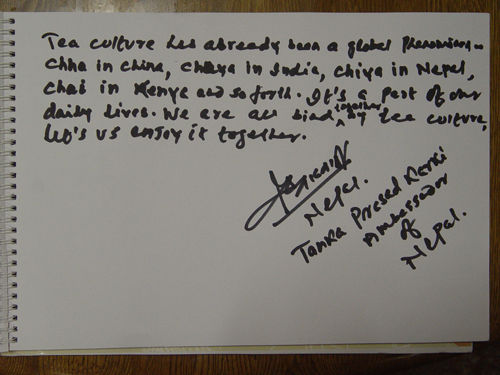 Tea culture has already been a global phenomenon -
chha in china, chaya in India, chiya in Nepal,
chai in Kenya and so forth. It's a part of our
daily lives. We are all bind together by tea culture,
let's us enjoy it together.
Nepal.
Tanka Prasad Karki
Ambassador
of
Nepal.